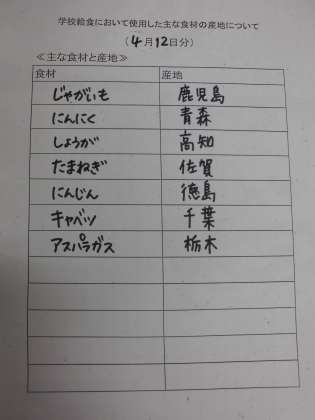 学校給食において使用した主な食材の産地について
(4月12日分)
≪主な食材と産地≫
食材 産地
じゃがいも 鹿児島
にんにく 青森
しょうが 高知
たまねぎ 佐賀
にんじん 徳島
キャベツ 千葉
アスパラガス 栃木